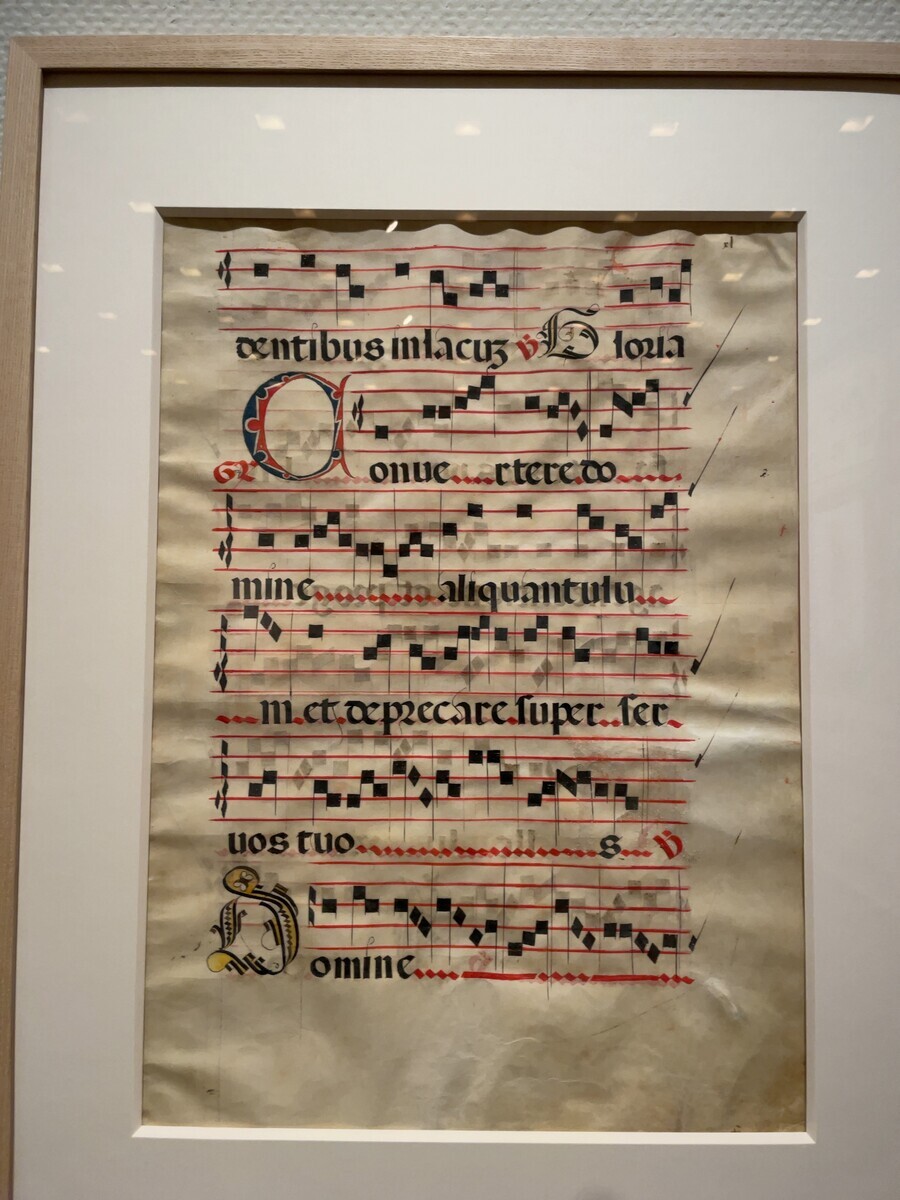 dentibus in lacuʒ ℣ Gloria
GR Conuertere do
mine aliquantulu
m et deprecare super ser
uos tuos ℣
Domine